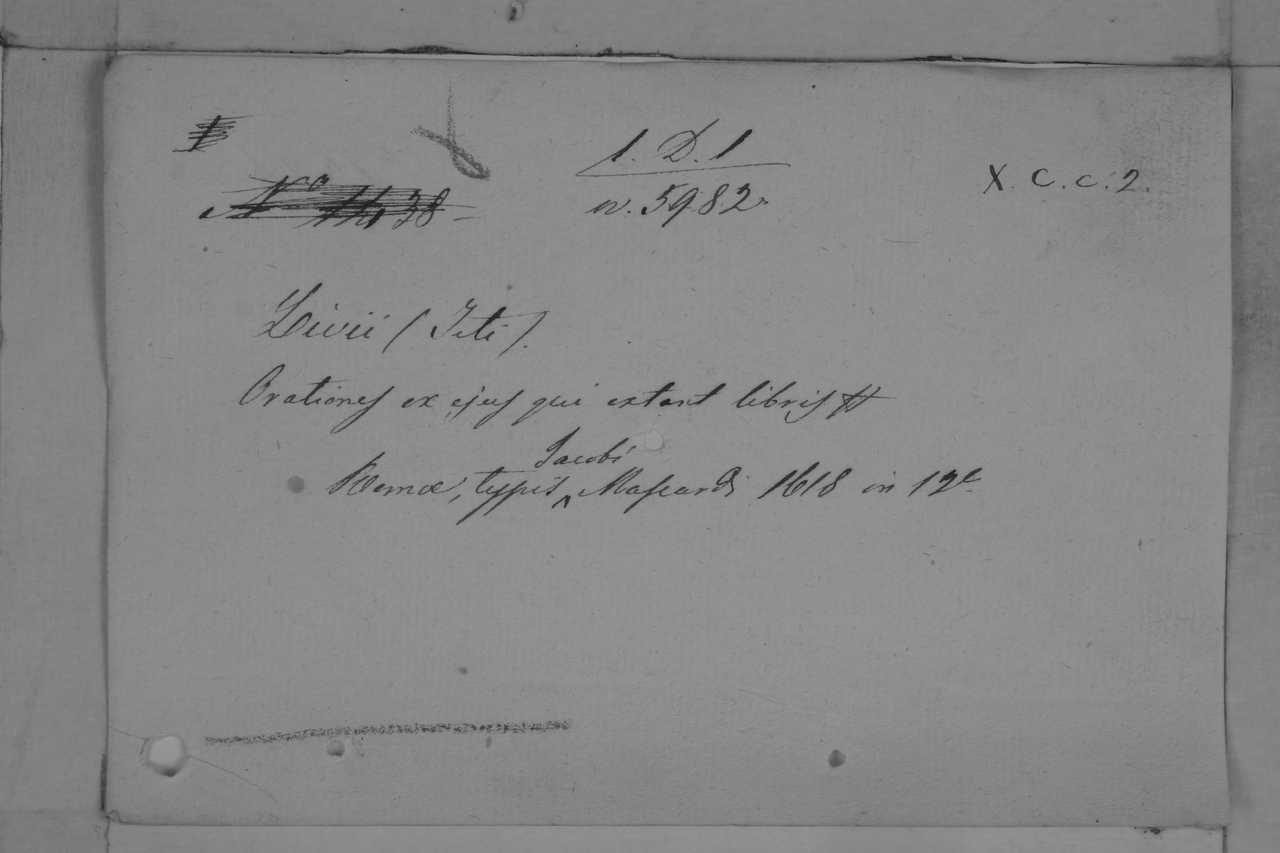 1. D. 1
n. 5982.
X. C. c. 2.
Livii (Titi).
Orationes ex ejus qui extant libris
Jacobi
Romæ, typis ^ Mascardi 1618 in 12º